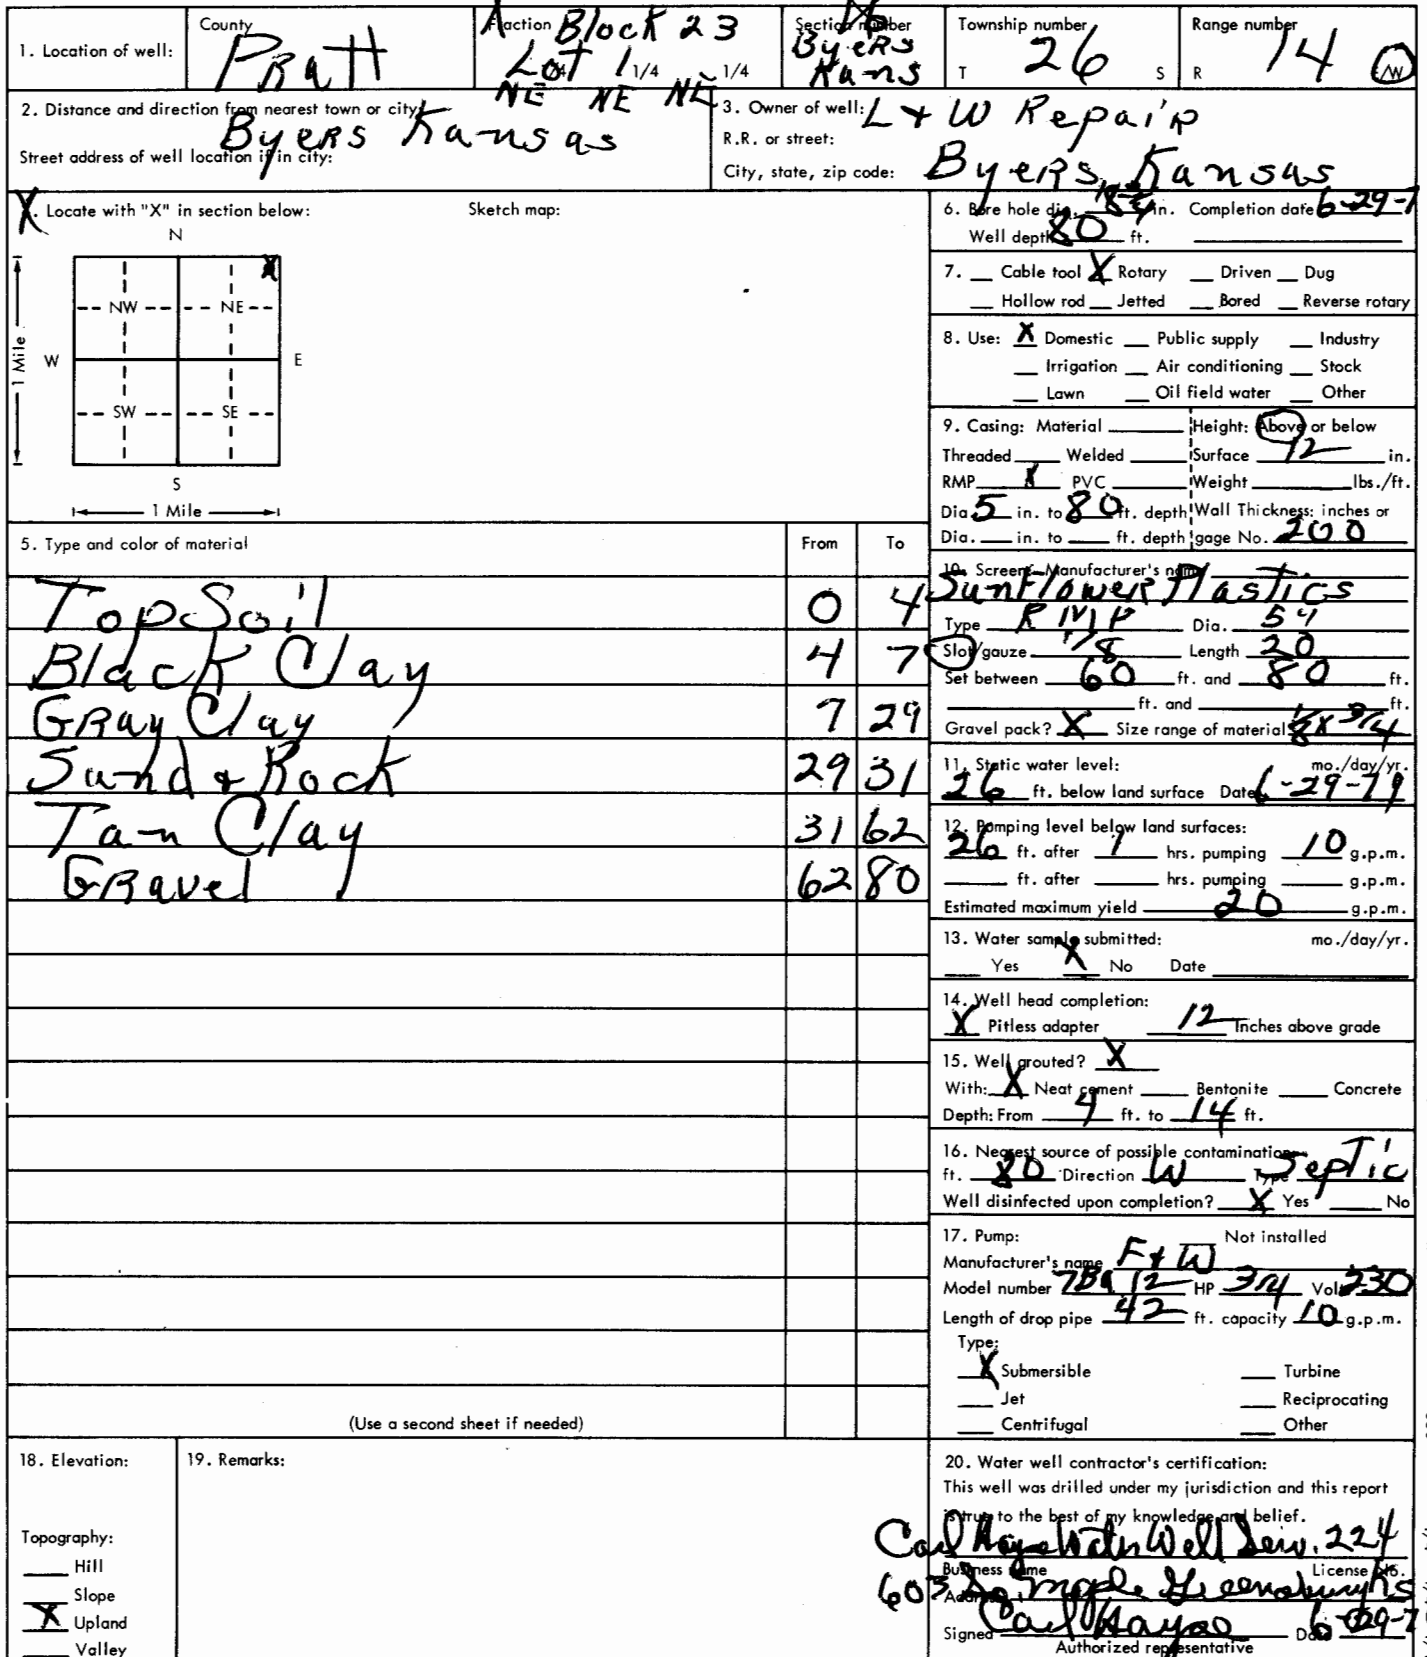 1. Location of well: County Pratt Fraction Block 23 Lot 1 1/4 1/4 NE NE NE Section number 16 Byers Kans Township number T 26 S Range number R 14 E/W
2. Distance and direction from nearest town or city: Byers Kansas
Street address of well location if in city:
3. Owner of well: L + W Repair
R.R. or street:
City, state, zip code: Byers, Kansas
4. Locate with "X" in section below: Sketch map:
N
X
NW NE
W E
1 Mile
SW SE
S
1 Mile
5. Type and color of material From To
Top Soil 0 4
Black Clay 4 7
Gray Clay 7 29
Sand & Rock 29 31
Tan Clay 31 62
Gravel 62 80
(Use a second sheet if needed)
6. Bore hole dia. in. Completion date 6-29-7
Well depth 80 ft.
7. Cable tool X Rotary Driven Dug
Hollow rod Jetted Bored Reverse rotary
8. Use: X Domestic Public supply Industry
Irrigation Air conditioning Stock
Lawn Oil field water Other
9. Casing: Material Height: Above or below
Threaded Welded Surface 12 in.
RMP X PVC Weight lbs./ft.
Dia. 5 in. to 80 ft. depth Wall Thickness: inches or
Dia. in. to ft. depth gage No. 200
10. Screen: Manufacturer's name
Sunflower Plastics
Type RMP Dia. 5"
Slot/gauze 1/8 Length 20
Set between 60 ft. and 80 ft.
ft. and ft.
Gravel pack? X Size range of material 1/8 x 3/4
11. Static water level: mo./day/yr.
26 ft. below land surface Date 6-29-79
12. Pumping level below land surfaces:
26 ft. after 1 hrs. pumping 10 g.p.m.
ft. after hrs. pumping g.p.m.
Estimated maximum yield 20 g.p.m.
13. Water sample submitted: mo./day/yr.
Yes X No Date
14. Well head completion:
X Pitless adapter 12 Inches above grade
15. Well grouted? X
With: X Neat cement Bentonite Concrete
Depth: From 4 ft. to 14 ft.
16. Nearest source of possible contamination:
ft. 80 Direction W Type Septic
Well disinfected upon completion? X Yes No
17. Pump: Not installed
Manufacturer's name F & W
Model number 12 HP 3/4 Volts 230
Length of drop pipe 42 ft. capacity 10 g.p.m.
Type:
X Submersible Turbine
Jet Reciprocating
Centrifugal Other
18. Elevation:
Topography:
Hill
Slope
X Upland
Valley
19. Remarks:
20. Water well contractor's certification:
This well was drilled under my jurisdiction and this report
is true to the best of my knowledge and belief.
Carl Water Well Serv. 224
Business name License No.
603 So Maple Greensburg Ks
Address
Signed Carl Date 6-29-7
Authorized representative